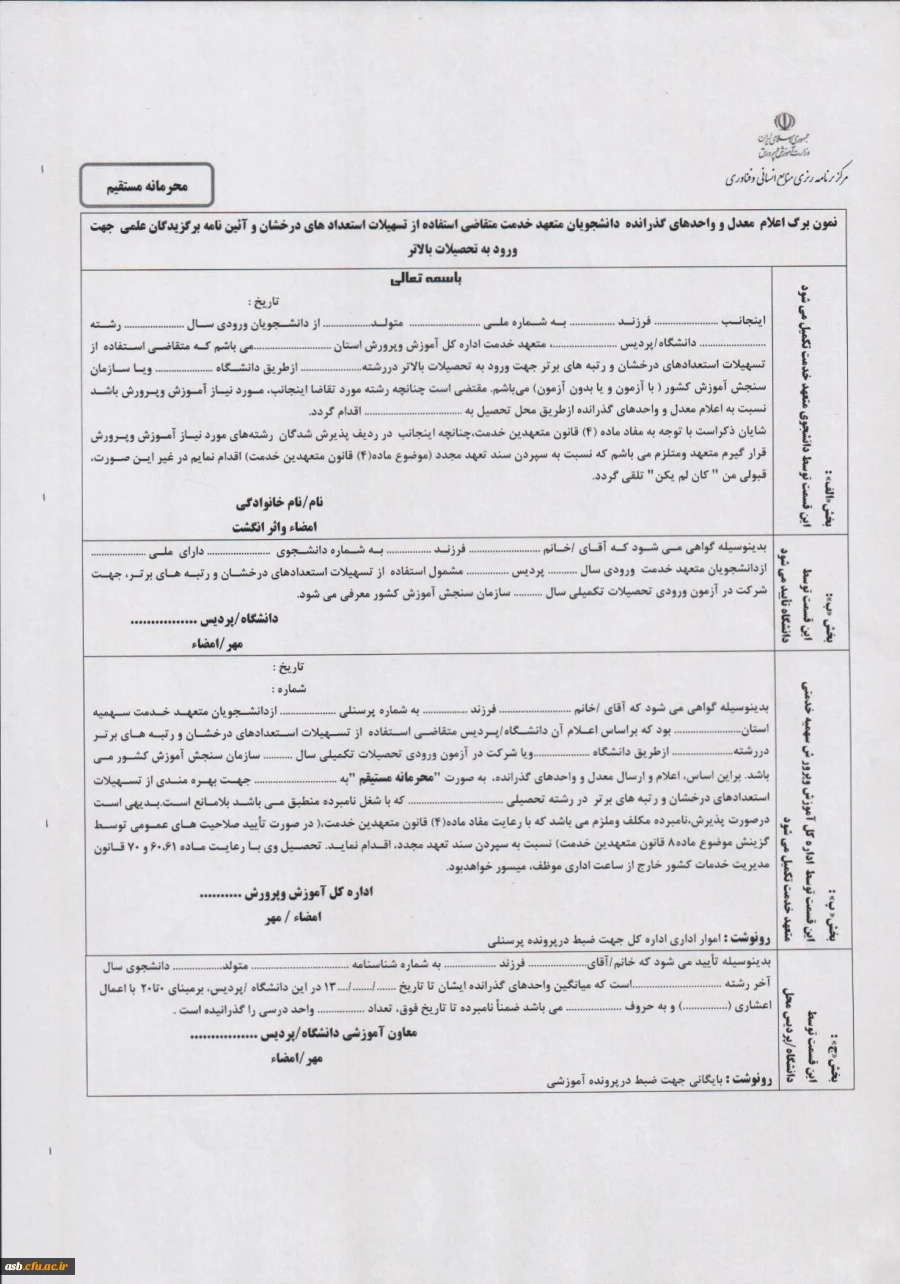 جمهوری اسلامی ایران
وزارت آموزش و پرورش
مرکز برنامه ریزی منابع انسانی و فناوری
محرمانه مستقیم
نمون برگ اعلام معدل و واحدهای گذرانده دانشجویان متعهد خدمت متقاضی استفاده از تسهیلات استعداد های درخشان و آئین نامه برگزیدگان علمی جهت
ورود به تحصیلات بالاتر
بخش «الف»:
این قسمت توسط دانشجوی متعهد خدمت تکمیل می شود
باسمه تعالی
تاریخ :
اینجانب ........................ فرزند ................ به شماره ملی ........................ متولد................. از دانشجویان ورودی سال ..................... رشته
...................... دانشگاه/پردیس ......................، متعهد خدمت اداره کل آموزش وپرورش استان ..........................می باشم که متقاضی استفاده از
تسهیلات استعدادهای درخشان و رتبه های برتر جهت ورود به تحصیلات بالاتر دررشته...................... ازطریق دانشگاه .................... ویا سازمان
سنجش آموزش کشور ( با آزمون و یا بدون آزمون) می‌باشم. مقتضی است چنانچه رشته مورد تقاضا اینجانب، مورد نیاز آموزش وپرورش باشد
نسبت به اعلام معدل و واحدهای گذرانده ازطریق محل تحصیل به .................................. اقدام گردد.
شایان ذکراست با توجه به مفاد ماده (۴) قانون متعهدین خدمت،چنانچه اینجانب در ردیف پذیرش شدگان رشته‌های مورد نیاز آموزش وپرورش
قرار گیرم متعهد وملتزم می باشم که نسبت به سپردن سند تعهد مجدد (موضوع ماده(۴) قانون متعهدین خدمت) اقدام نمایم در غیر این صورت،
قبولی من " کان لم یکن" تلقی گردد.
نام/نام خانوادگی
امضاء واثر انگشت
بخش «ب»:
این قسمت توسط
دانشگاه تأیید می شود
بدینوسیله گواهی می شود که آقای /خانم ........................ فرزند ................ به شماره دانشجوی ...................... دارای ملی ...................
ازدانشجویان متعهد خدمت ورودی سال .......... پردیس ............... مشمول استفاده از تسهیلات استعدادهای درخشان و رتبه های برتر، جهت
شرکت در آزمون ورودی تحصیلات تکمیلی سال .......... سازمان سنجش آموزش کشور معرفی می شود.
دانشگاه/پردیس ................
مهر/امضاء
بخش « پ» :
این قسمت توسط اداره کل آموزش وپرورش سهمیه خدمتی
متعهد خدمت تکمیل می شود
تاریخ :
شماره :
بدینوسیله گواهی می شود که آقای /خانم ........................ فرزند ................ به شماره پرسنلی ................... ازدانشجویان متعهد خدمت سهمیه
استان....................... بود که براساس اعلام آن دانشگاه/پردیس متقاضی استفاده از تسهیلات استعدادهای درخشان و رتبه های برتر
دررشته..................... ازطریق دانشگاه ....................ویا شرکت در آزمون ورودی تحصیلات تکمیلی سال .......... سازمان سنجش آموزش کشور می
باشد. براین اساس، اعلام و ارسال معدل و واحدهای گذرانده، به صورت "محرمانه مستیقم "به ............................ جهت بهره مندی از تسهیلات
استعدادهای درخشان و رتبه های برتر در رشته تحصیلی ................................ که با شغل نامبرده منطبق می باشد بلامانع است.بدیهی است
درصورت پذیرش،نامبرده مکلف وملزم می باشد که با رعایت مفاد ماده(۴) قانون متعهدین خدمت،( در صورت تأیید صلاحیت های عمومی توسط
گزینش موضوع ماده۸ قانون متعهدین خدمت) نسبت به سپردن سند تعهد مجدد، اقدام نماید. تحصیل وی با رعایت ماده ۶۰،۶۱ و ۷۰ قانون
مدیریت خدمات کشور خارج از ساعت اداری موظف، میسور خواهدبود.
اداره کل آموزش وپرورش ..........
امضاء / مهر
رونوشت : اموار اداری اداره کل جهت ضبط درپرونده پرسنلی
بخش «ج» :
این قسمت توسط
دانشگاه/پردیس محل
بدینوسیله تأیید می شود که خانم/آقای................... فرزند .................. به شماره شناسنامه ............................ متولد................. دانشجوی سال
آخر رشته ..............................است که میانگین واحدهای گذرانده ایشان تا تاریخ ....../....../...۱۳ در این دانشگاه /پردیس، برمبنای ۰تا۲۰ با اعمال
اعشاری (...............) و به حروف ................... می باشد ضمناً نامبرده تا تاریخ فوق، تعداد ................ واحد درسی را گذرانیده است .
معاون آموزشی دانشگاه/پردیس ................
مهر/امضاء
رونوشت : بایگانی جهت ضبط درپرونده آموزشی
asb.cfu.ac.ir